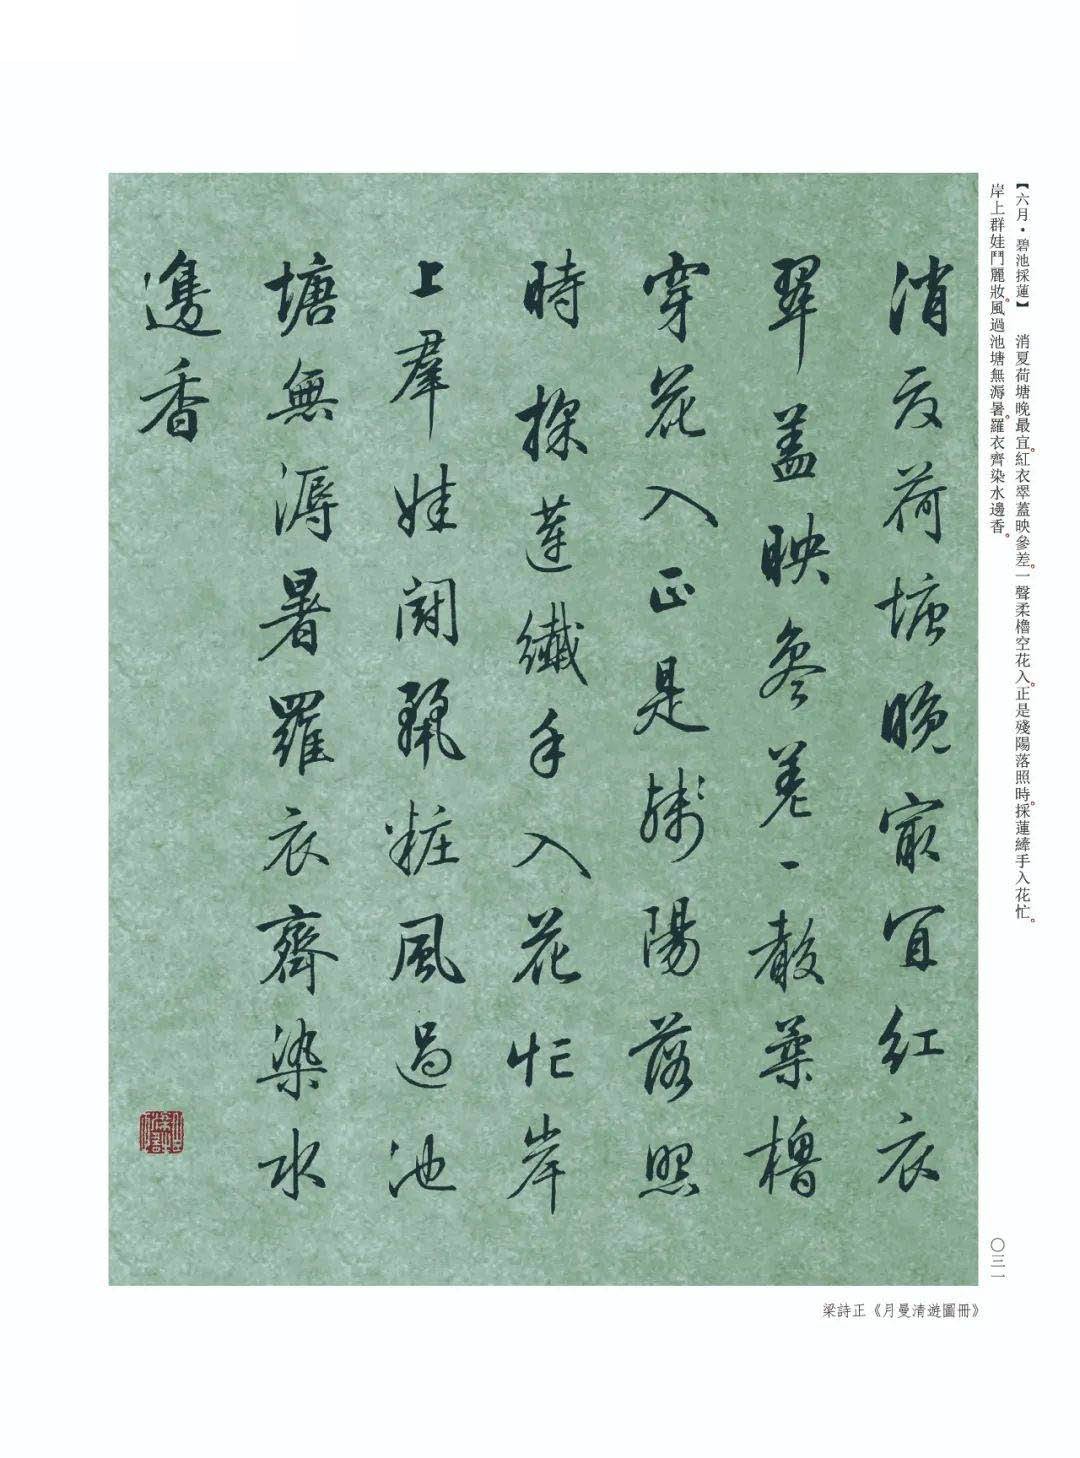 【六月·碧池採蓮】 消夏荷塘晚最宜。紅衣翠蓋映參差。一聲柔櫓空花入。正是殘陽落照時。採蓮縴手入花忙。
岸上群娃鬥麗妝。風過池塘無溽暑。羅衣齊染水邊香。
消夏荷塘晚最宜紅衣
翠蓋映參差一聲柔櫓
穿花入正是殘陽落照
時採蓮纖手入花忙岸
上羣娃鬪麗粧風過池
塘無溽暑羅衣齊染水
邊香
〇三一
梁詩正《月曼清遊圖冊》